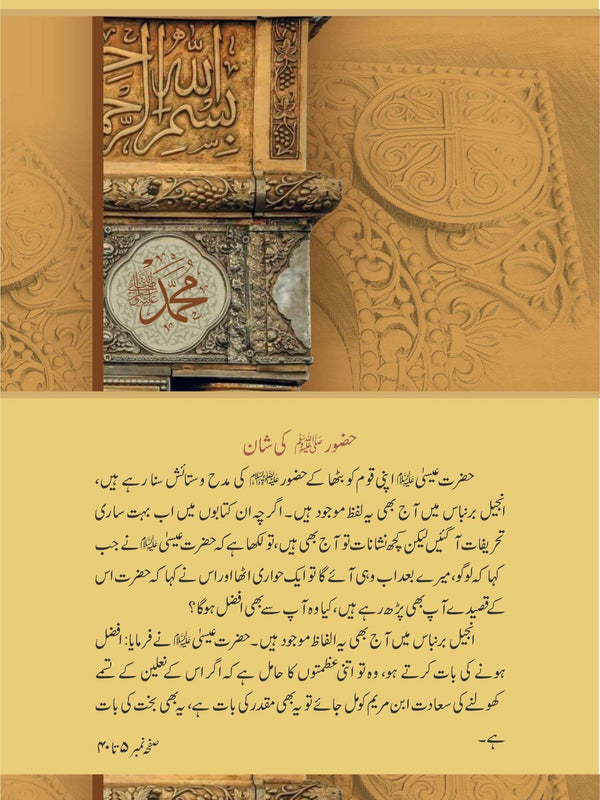 بسم اللہ الرحمـ
محمد ﷺ
حضور ﷺ کی شان
حضرت عیسیٰ علیہ السلام اپنی قوم کو بٹھا کے حضور ﷺ کی مدح و ستائش سنا رہے ہیں،
انجیل برنباس میں آج بھی یہ لفظ موجود ہیں۔ اگرچہ ان کتابوں میں اب بہت ساری
تحریفات آ گئیں لیکن کچھ نشانات تو آج بھی ہیں، تو لکھا ہے کہ حضرت عیسیٰ علیہ السلام نے جب
کہا کہ لوگو، میرے بعد اب وہی آئے گا تو ایک حواری اٹھا اور اس نے کہا کہ حضرت اس
کے قصیدے آپ بھی پڑھ رہے ہیں، کیا وہ آپ سے بھی افضل ہوگا؟
انجیل برنباس میں آج بھی یہ الفاظ موجود ہیں۔ حضرت عیسیٰ علیہ السلام نے فرمایا: افضل
ہونے کی بات کرتے ہو، وہ تو اتنی عظمتوں کا حامل ہے کہ اگر اس کے نعلین کے تسمے
کھولنے کی سعادت ابن مریم کو مل جائے تو یہ بھی مقدر کی بات ہے، یہ بھی بخت کی بات
ہے۔
صفحہ نمبر ۵ تا ۴۰